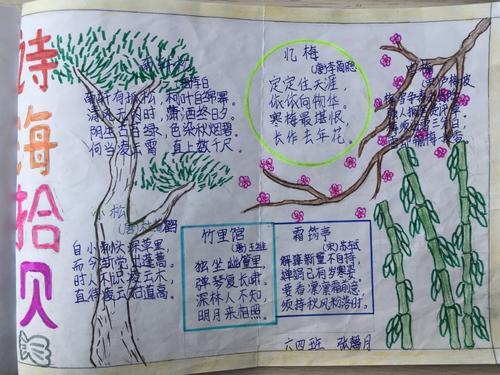 诗海拾贝
南轩松
(唐)李白
南轩有孤松,柯叶自绵幂。
清风无闲时,潇洒终日夕。
阴生古苔绿,色染秋烟碧。
何当凌云霄,直上数千尺。
小松
自小刺头深草里,
而今渐觉出蓬蒿。
时人不识凌云木,
直待凌云始道高。
忆梅
(唐)李商隐
定定住天涯,
依依向物华。
寒梅最堪恨,
长作去年花。
竹里馆
(唐)王维
独坐幽篁里,
弹琴复长啸。
深林人不知,
明月来相照。
霜筠亭
(宋)苏轼
解箨新篁不自持,
婵娟已有岁寒姿。
要看凛凛霜前意,
须待秋风粉落时。
六四班 张馨月